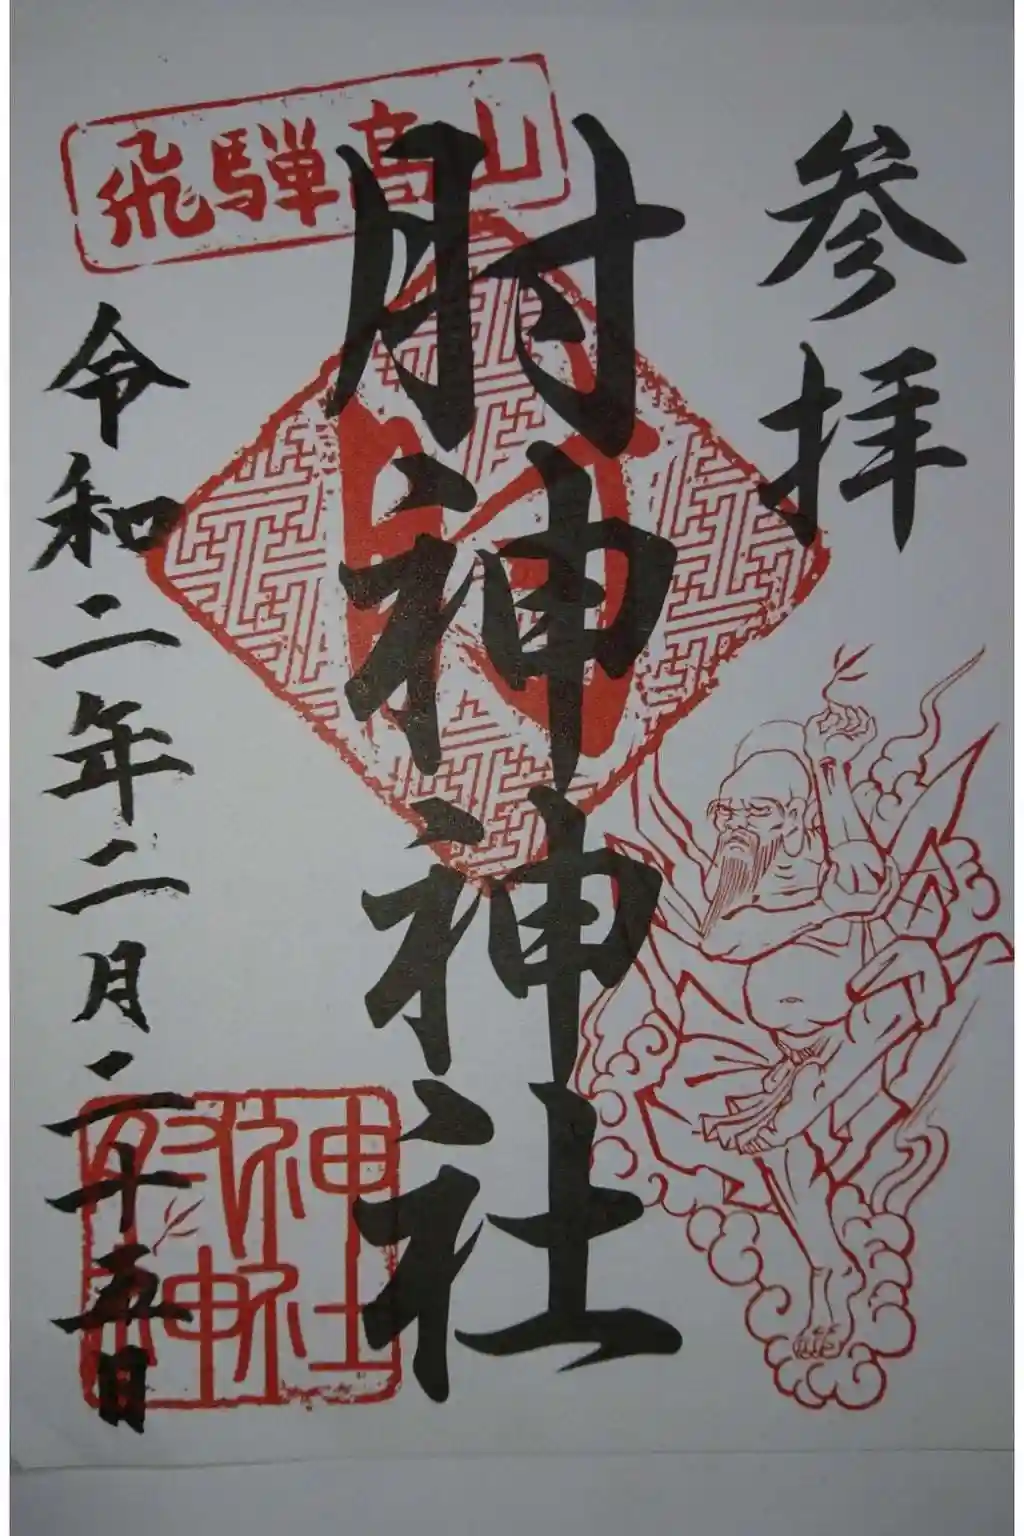 参拝
飛騨高山
肘神神社
令和二年二月二十五日
肘神神社